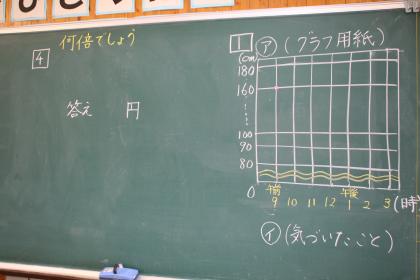 何倍でしょう
4
答え 円
1 ㋐ (グラフ用紙)
(cm)
180
160
100
90
80
0
午前 午後
9 10 11 12 1 2 3 (時)
㋑ (気づいたこと)